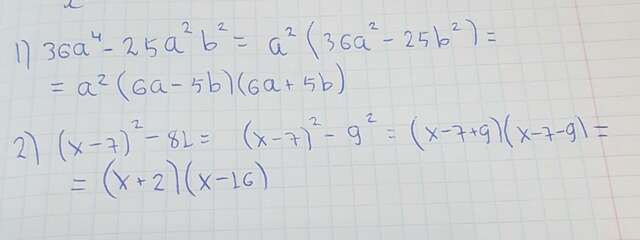 1) 36a⁴ - 25a²b² = a²(36a² - 25b²) =
= a²(6a - 5b)(6a + 5b)
2) (x - 7)² - 81 = (x - 7)² - 9² = (x - 7 + 9)(x - 7 - 9) =
= (x + 2)(x - 16)